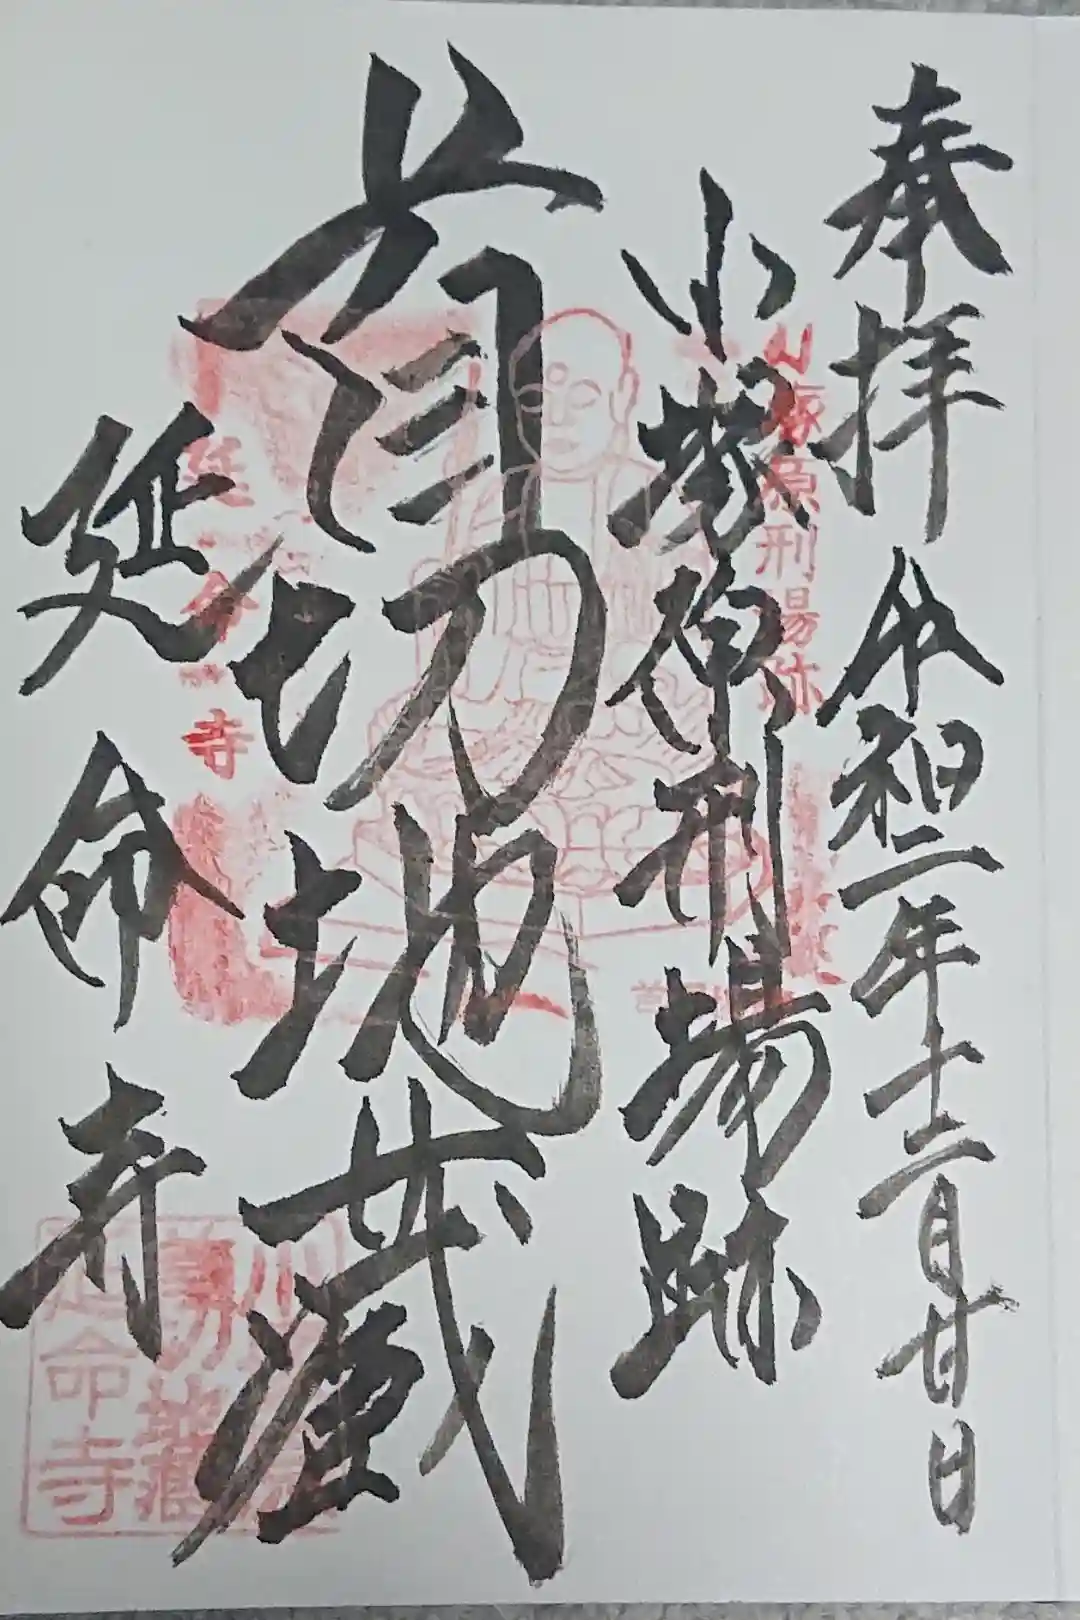 奉拝 令和二年十二月廿日
小塚原刑場跡
小塚原刑場跡
首切地蔵
延命寺
延命寺
首切地蔵
延命寺